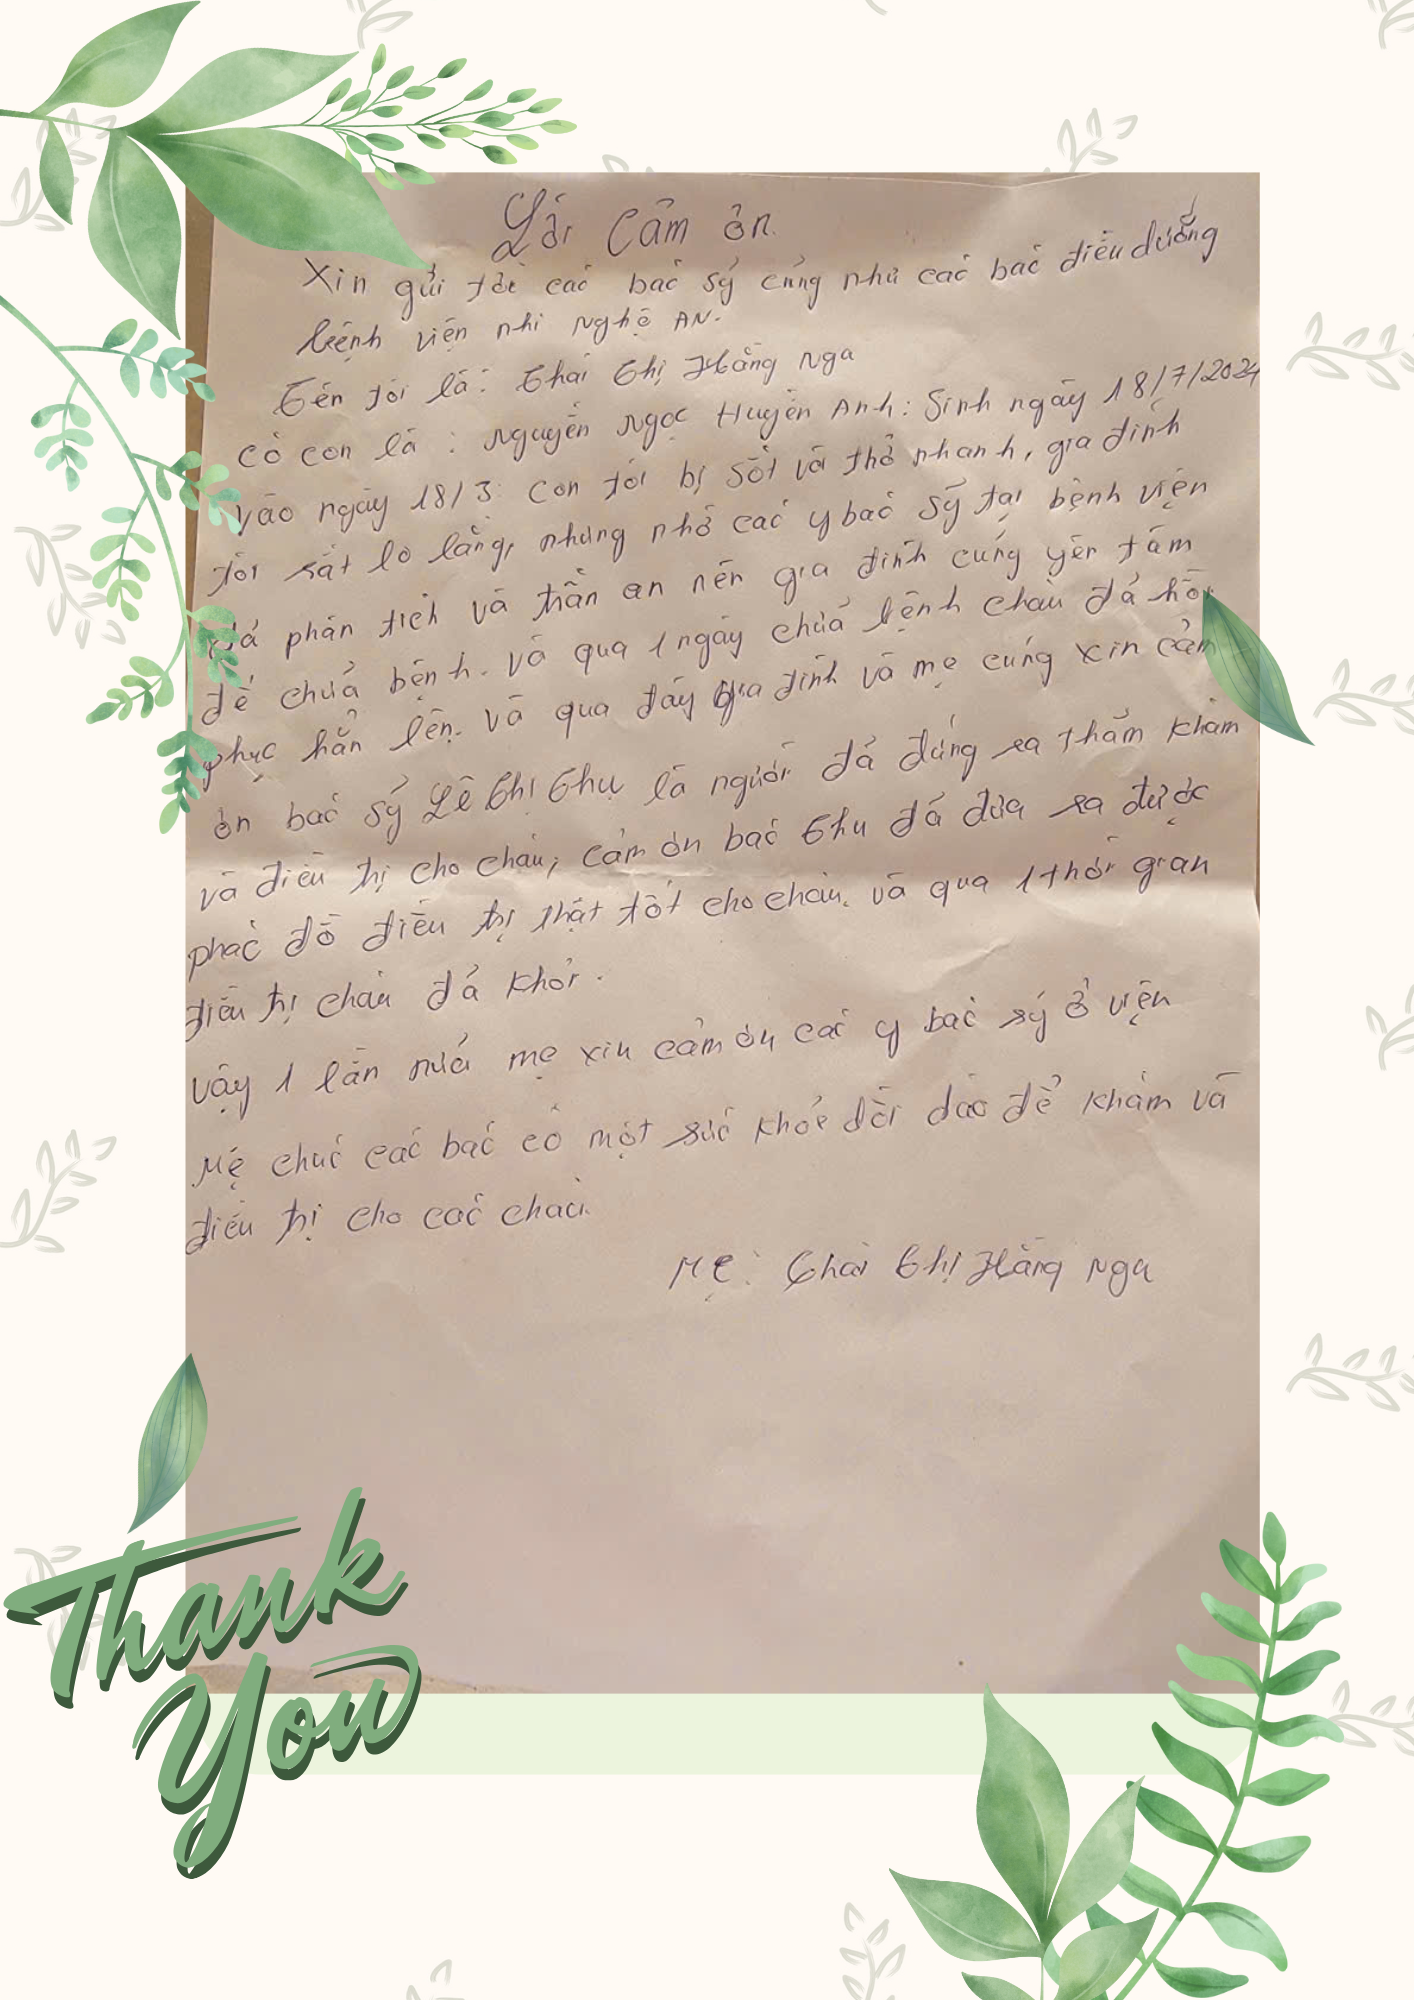 Lời Cảm ơn.
Xin gửi tới các bác sỹ cũng như các bác điều dưỡng
bệnh viện nhi Nghệ AN.
Tên tôi là: Thái Thị Hằng Nga
Có con là: Nguyễn Ngọc Huyền Anh: Sinh ngày 18/7/2024
Vào ngày 18/3 Con tôi bị sốt và thở nhanh, gia đình
tôi rất lo lắng, nhưng nhờ các y bác sỹ tại bệnh viện
đã phân tích và trấn an nên gia đình cũng yên tâm
để chữa bệnh. Và qua 1 ngày chữa bệnh cháu đã hồi
phục hẳn lên. Và qua đây gia đình và mẹ cũng xin cảm
ơn bác sỹ Lê Thị Thu là người đã đứng ra thăm khám
và điều trị cho cháu, cảm ơn bác Thu đã đưa ra được
phác đồ điều trị thật tốt cho cháu. và qua 1 thời gian
điều trị cháu đã khỏi.
Vậy 1 lần nữa mẹ xin cảm ơn các y bác sỹ ở viện
Mẹ chúc các bác có một sức khỏe dồi dào để khám và
điều trị cho các cháu.
Mẹ: Thái Thị Hằng Nga
Thank
You